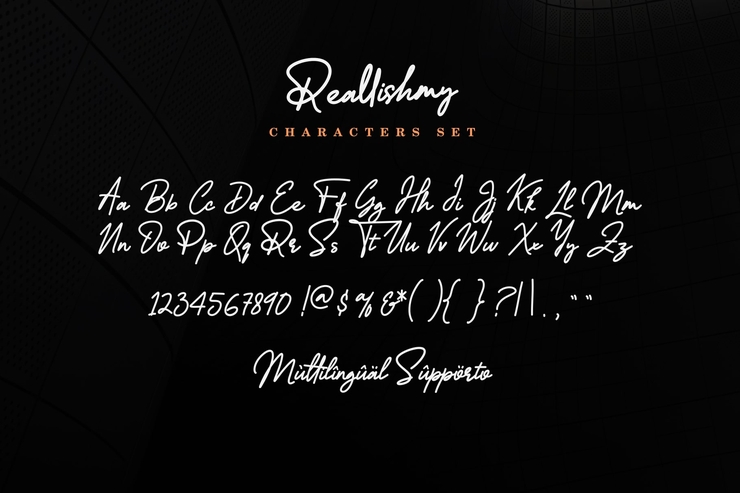 Reallishmy
CHARACTERS SET
Aa Bb Cc Dd Ee Ff Gg Hh Ii Jj Kk Ll Mm
Nn Oo Pp Qq Rr Ss Tt Uu Vv Ww Xx Yy Zz
1234567890 !@$%&*( ){ }?||.,""
Mùltilîngûäl Sûppörto